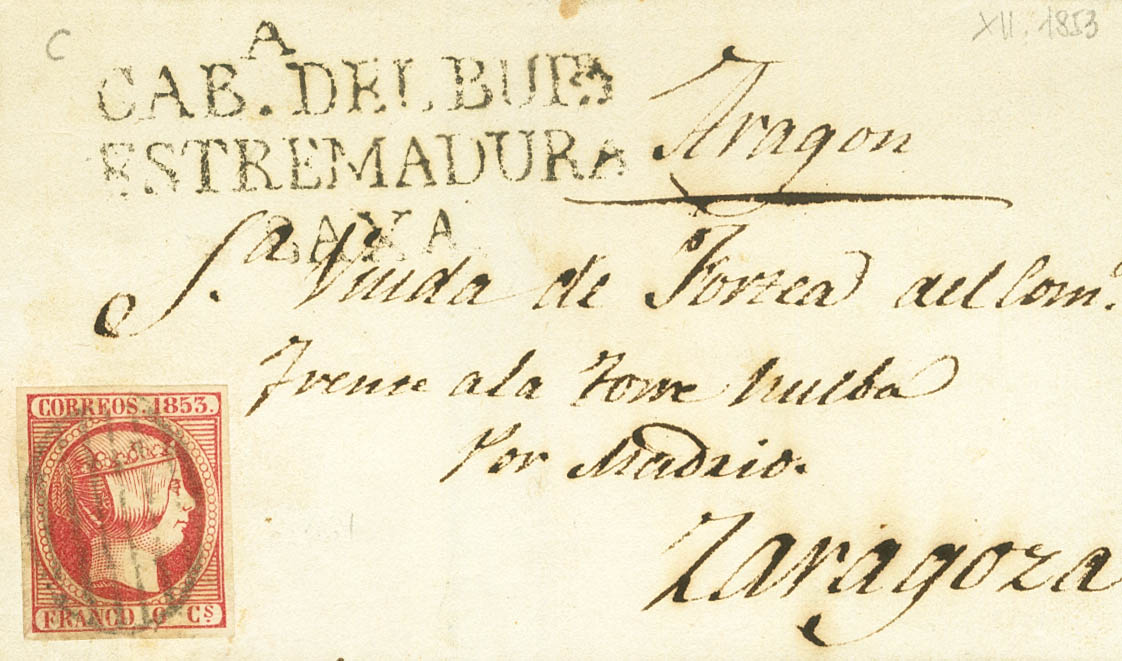 C
XII. 1853
A
CAB. DEL BUEY
ESTREMADURA
BAXA
Aragon
Sa. Viuda de Fortea del Com.o
frente a la torre nueba
Por Madrid.
Zaragoza
CORREOS. 1853.
FRANCO 6 Cs